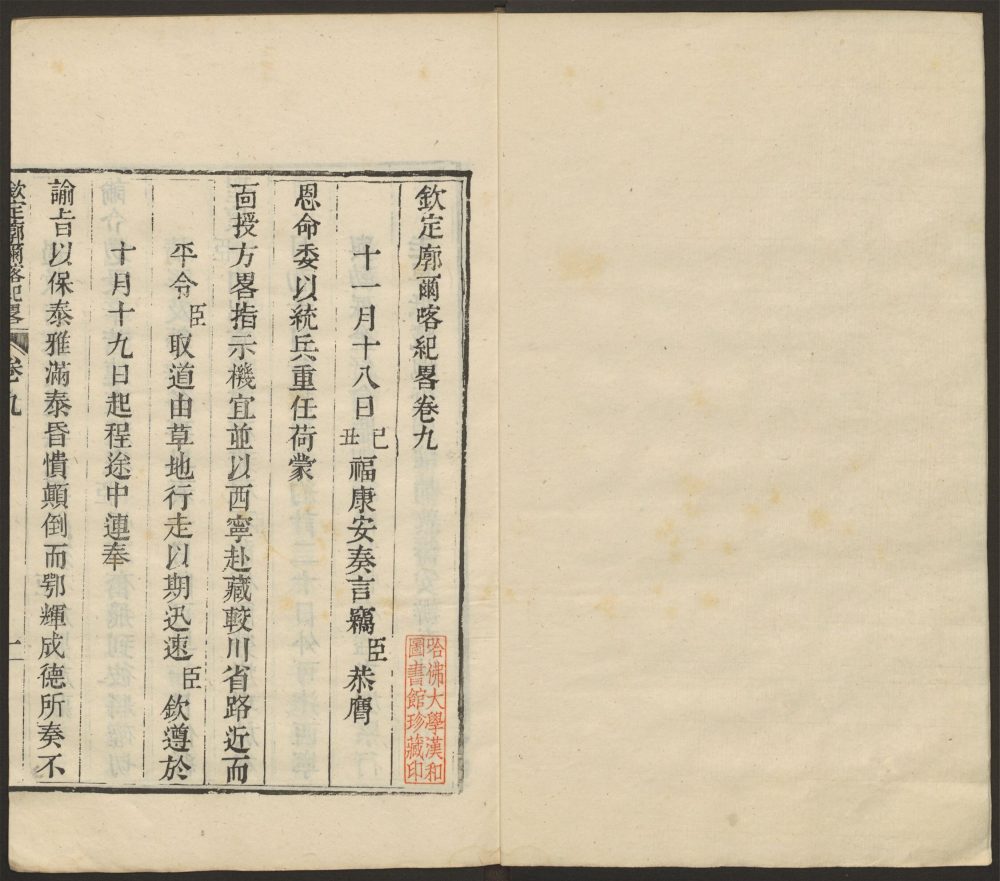 欽定廓爾喀紀畧卷九
十一月十八日己丑福康安奏言竊臣恭膺
恩命委以統兵重任荷蒙
面授方畧指示機宜並以西寧赴藏較川省路近而
平令臣取道由草地行走以期迅速臣欽遵於
十月十九日起程途中連奉
諭旨以保泰雅滿泰昏憒顛倒而鄂輝成德所奏不
欽定廓爾喀紀畧 卷九
哈佛大學漢和
圖書館珍藏印